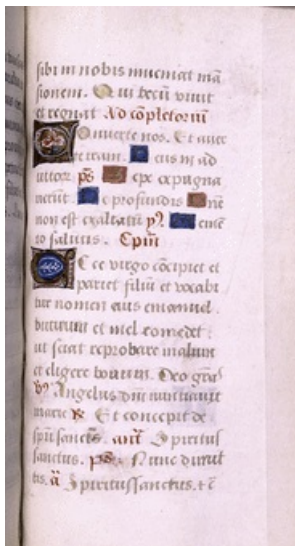 sibi in nobis inueniat mā
sionem. Qui tecū viuit
et regnat Ad cōpletoriū
Conuerte nos. Et auer
te iram. Deus in ad
iutor. ps Sepe expugna
uerūt. De profundis Dn̄e
non est exaltatū ỹ. Memē
to salutis. Cpīm
Ecce virgo cōcipiet et
pariet filiū et vocabi
tur nomen eius emanuel.
butirum et mel comedet:
ut sciat reprobare malum
et eligere bonum. Deo grās
ỹ Angelus dn̄i nuntiauit
marie ℟. Et concepit de
spū sancto. ant Spiritus
sanctus. ps. Nunc dimit
tis. ā Spiritus sanctus. t ē